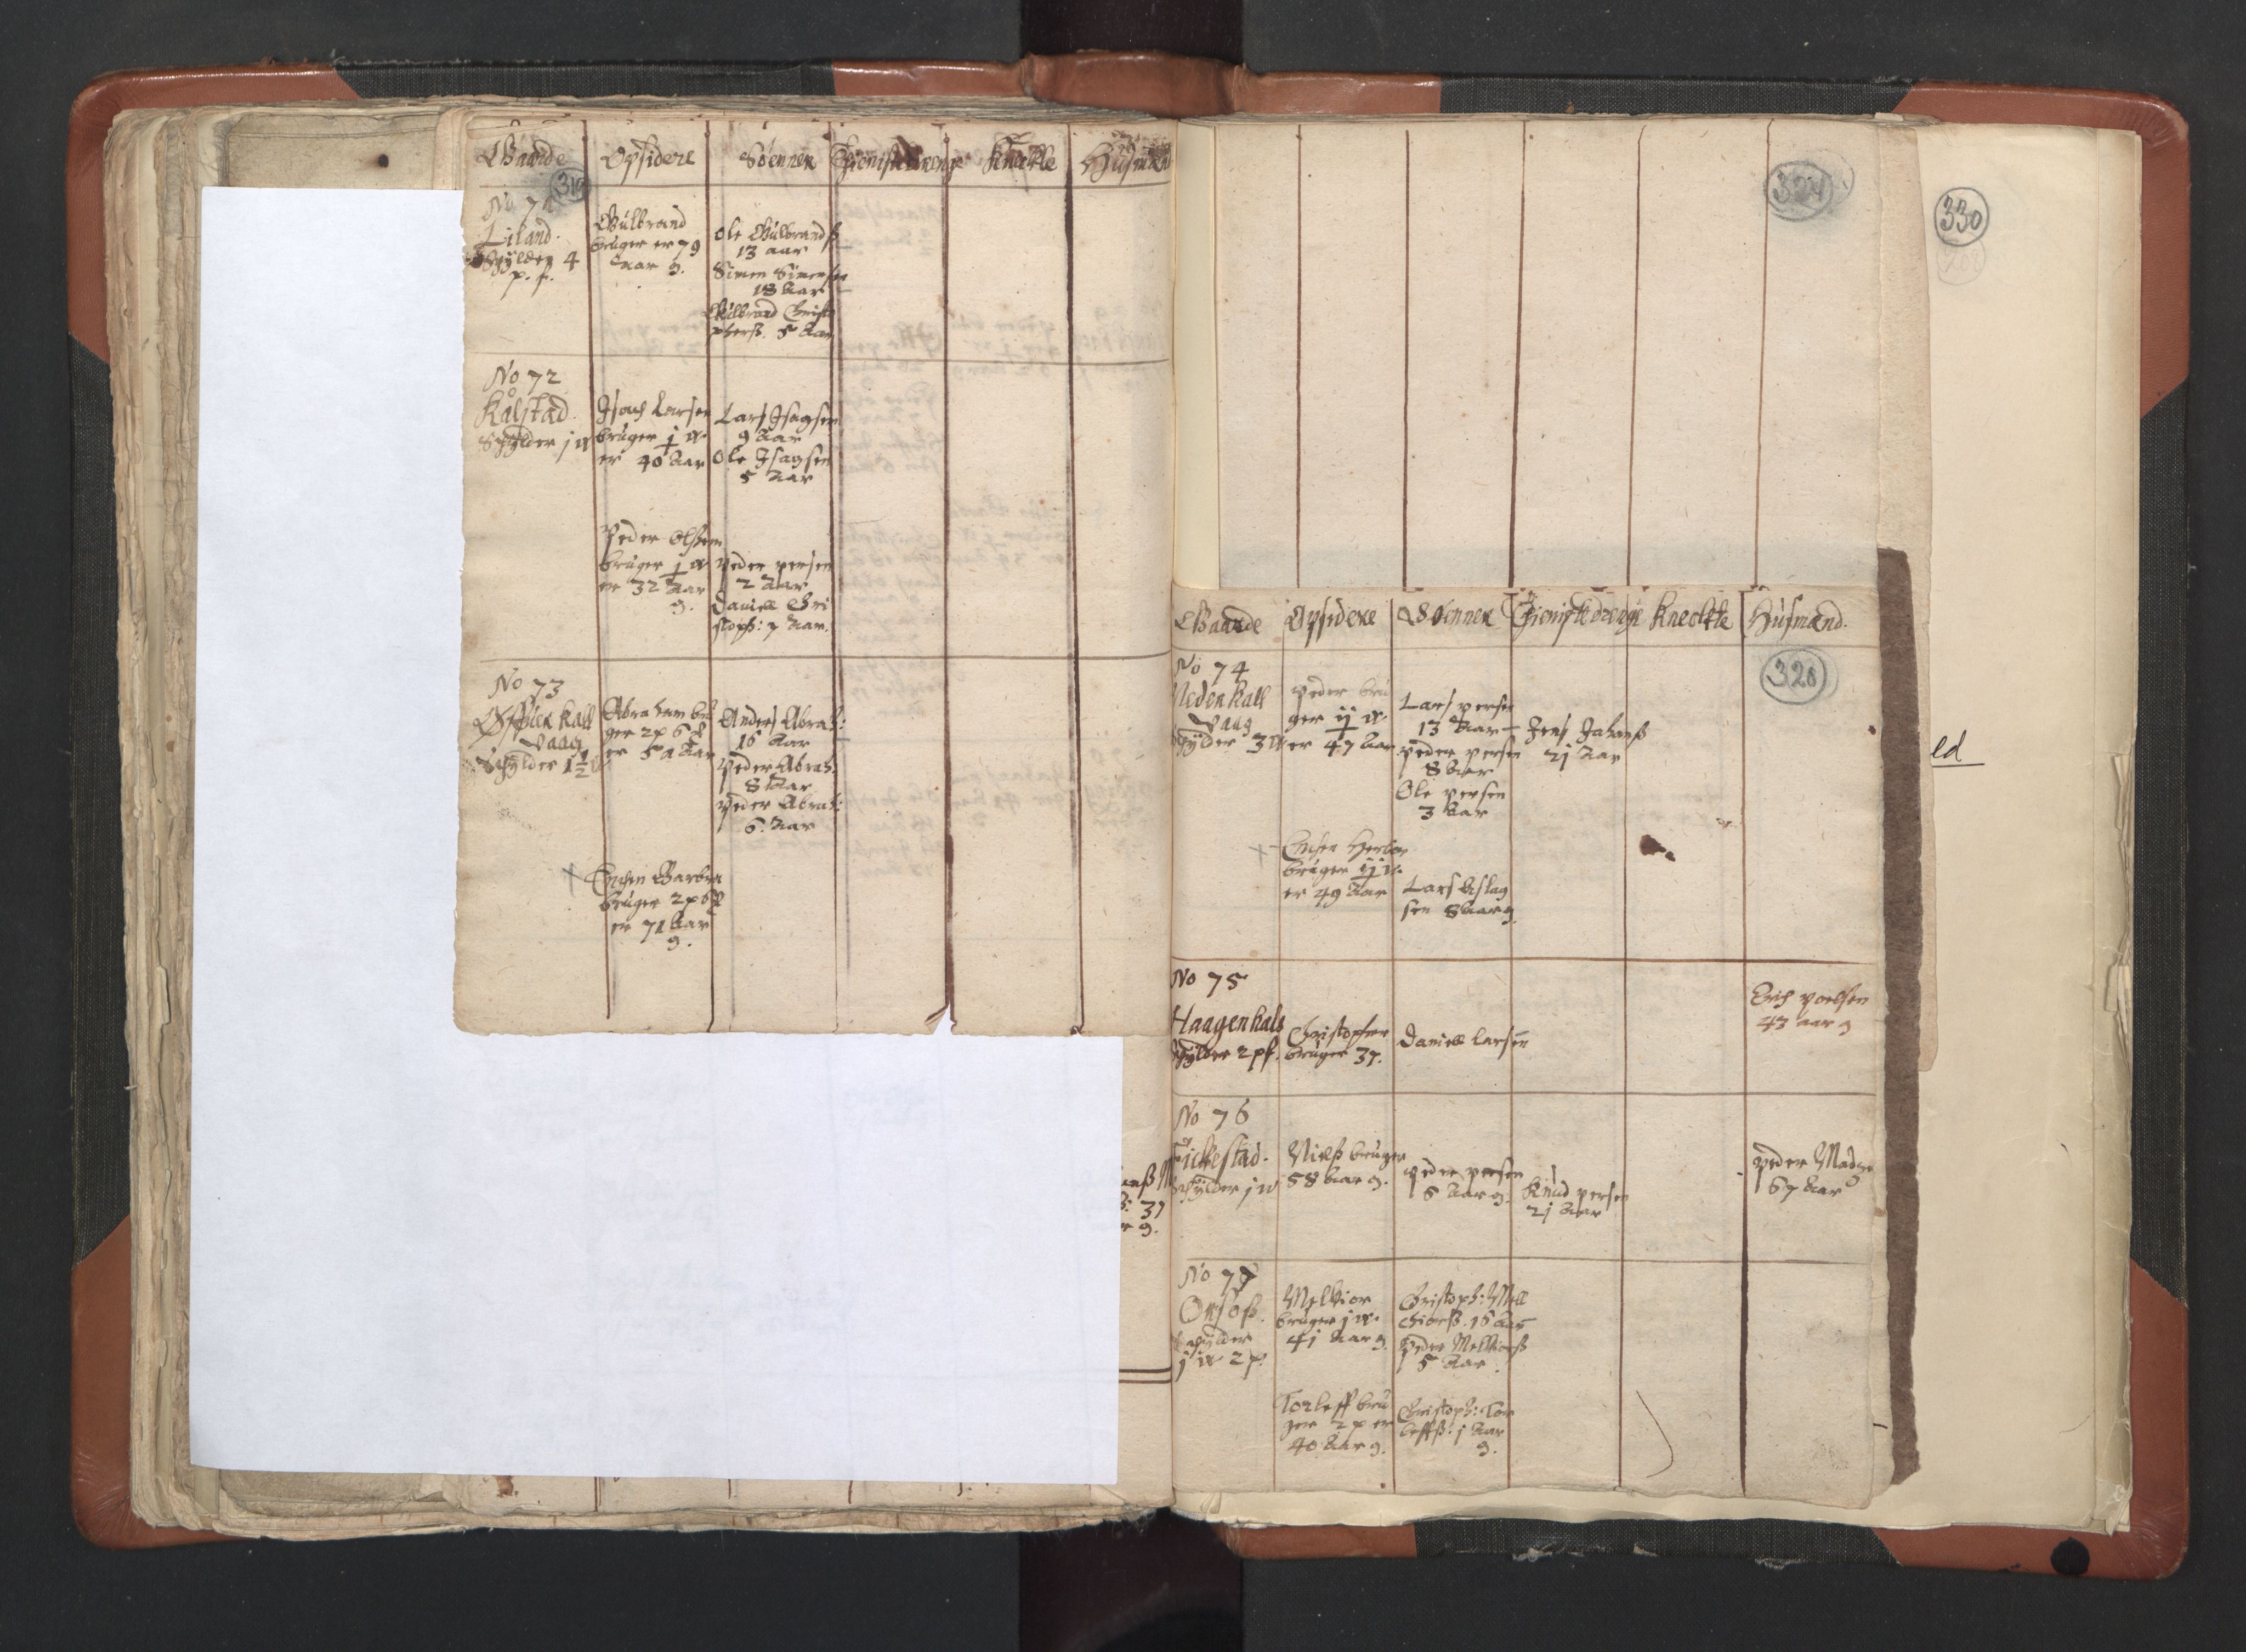 Gaarde Opsidere Sønner Thienistedrenge Knechte Husmænd
319
No 71
Liland.
Schylder 4
p. f.
Gulbrand
bruger er 79
Aar g.
Ole Gulbrandß
13 aar
Simen Simensen
18 Aar
Gulbrand Christo
pherß. 5 Aar
No 72
Kalstad.
Schylder j w
Isach Larsen
bruger j w
er 40 Aar
Lars Isagsen
9 Aar
Ole Isagsen
5 Aar
Peder Olsen
bruger j w
er 32 Aar
g.
Peder persen
2 Aar
Daniell Chri
stoph: 7 Aar.
No 73
Øffuer kall
Vaag
Schylder 1½ w
Abraham bru
ger 2 p 6
er 51 Aar
Anders Abrah:
16 Aar
Peder Abrah:
8 Aar
Peder Abrah:
6. Aar
Enchen Barbra
bruger 2 p 6
er 71 Aar
g.
37
g.
324
330
ed
Gaarde Opsidere Sønner Thienistedrenge Knechte Husmænd.
320
No 74
Neden kall
Vaag
Schylder 3 w
Peder bru
ger ij w.
er 47 Aar
Lars persen
13 Aar
Peder persen
8 Aar
Ole persen
3 Aar
Jens Johanß
21 Aar
Enchen
bruger ij w.
er 49 Aar
Lars Aslag
sen 8 Aar g.
No 75
Haagenhals
Schylder 2 pf.
Christopher
bruger 37.
Daniell Larsen
Erich poelsen
43 aar g
No 76
Fickestad.
Schylder j w
Nielß bruger
58 Aar g.
Peder persen
6 Aar g.
Knud persen
21 Aar
Peder Mads
67 Aar
No 77
Onsøß.
Schylder
j w 2 p.
Melkior
bruger j w.
41 Aar g.
Christoph: Mell
chiorß. 16 Aar
Peder Melkiorß
5 Aar.
Torleff bru
ger 2 p er
40 Aar g.
Christoph: Tor
leffß: 1 Aar
g.